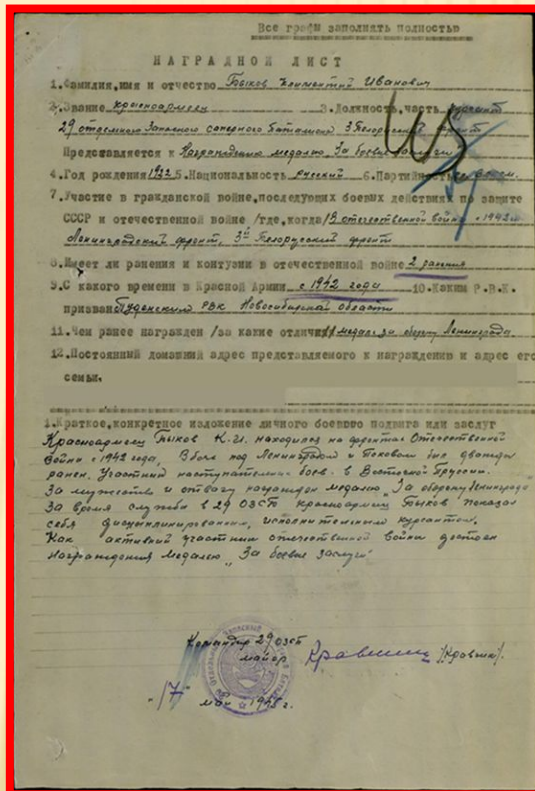 Все графы заполнять полностью
НАГРАДНОЙ ЛИСТ
1.Фамилия,имя и отчество Быков Климентий Иванович
2.Звание красноармеец 3.Должность,часть курсант
29 отдельного Запасного саперного баталиона 3 Белорусск фронт
Представляется к Награждению медалью „За боевые заслуги“
4.Год рождения 1922 5.Национальность русский 6.Партийность
7.Участие в гражданской войне,последующих боевых действиях по защите
СССР и отечественной войне /где,когда/ В отечественной войне с 1942 г
Ленинградский фронт, 3й Белорусский фронт
8.Имеет ли ранения и контузии в отечественной войне 2 ранения
9.С какого времени в Красной Армии с 1942 года 10.Каким Р.В.К.
призван РВК Новосибирской области
11.Чем ранее награжден /за какие отличия/ медаль за оборону Ленинграда
12.Постоянный домашний адрес представляемого к награждению и адрес его
семьи.
1.Краткое,конкретное изложение личного боевого подвига или заслуг
Красноармеец Быков К.И. находился на фронтах Отечественной
войны с 1942 года, В боях под Ленинградом и Псковом был дважды
ранен. Участник наступательных боев в Восточной Пруссии.
За мужество и отвагу награжден медалью „За оборону Ленинграда
За время службы в 29 ОЗСБ красноармеец Быков показал
себя дисциплинированным, исполнительным курсантом.
Как активный участник отечественной войны достоин
награждения медалью „За боевые заслуги“
Командир 29 ОЗСБ
майор Кравчик /Кравчик/.
"17" май 1945 г.